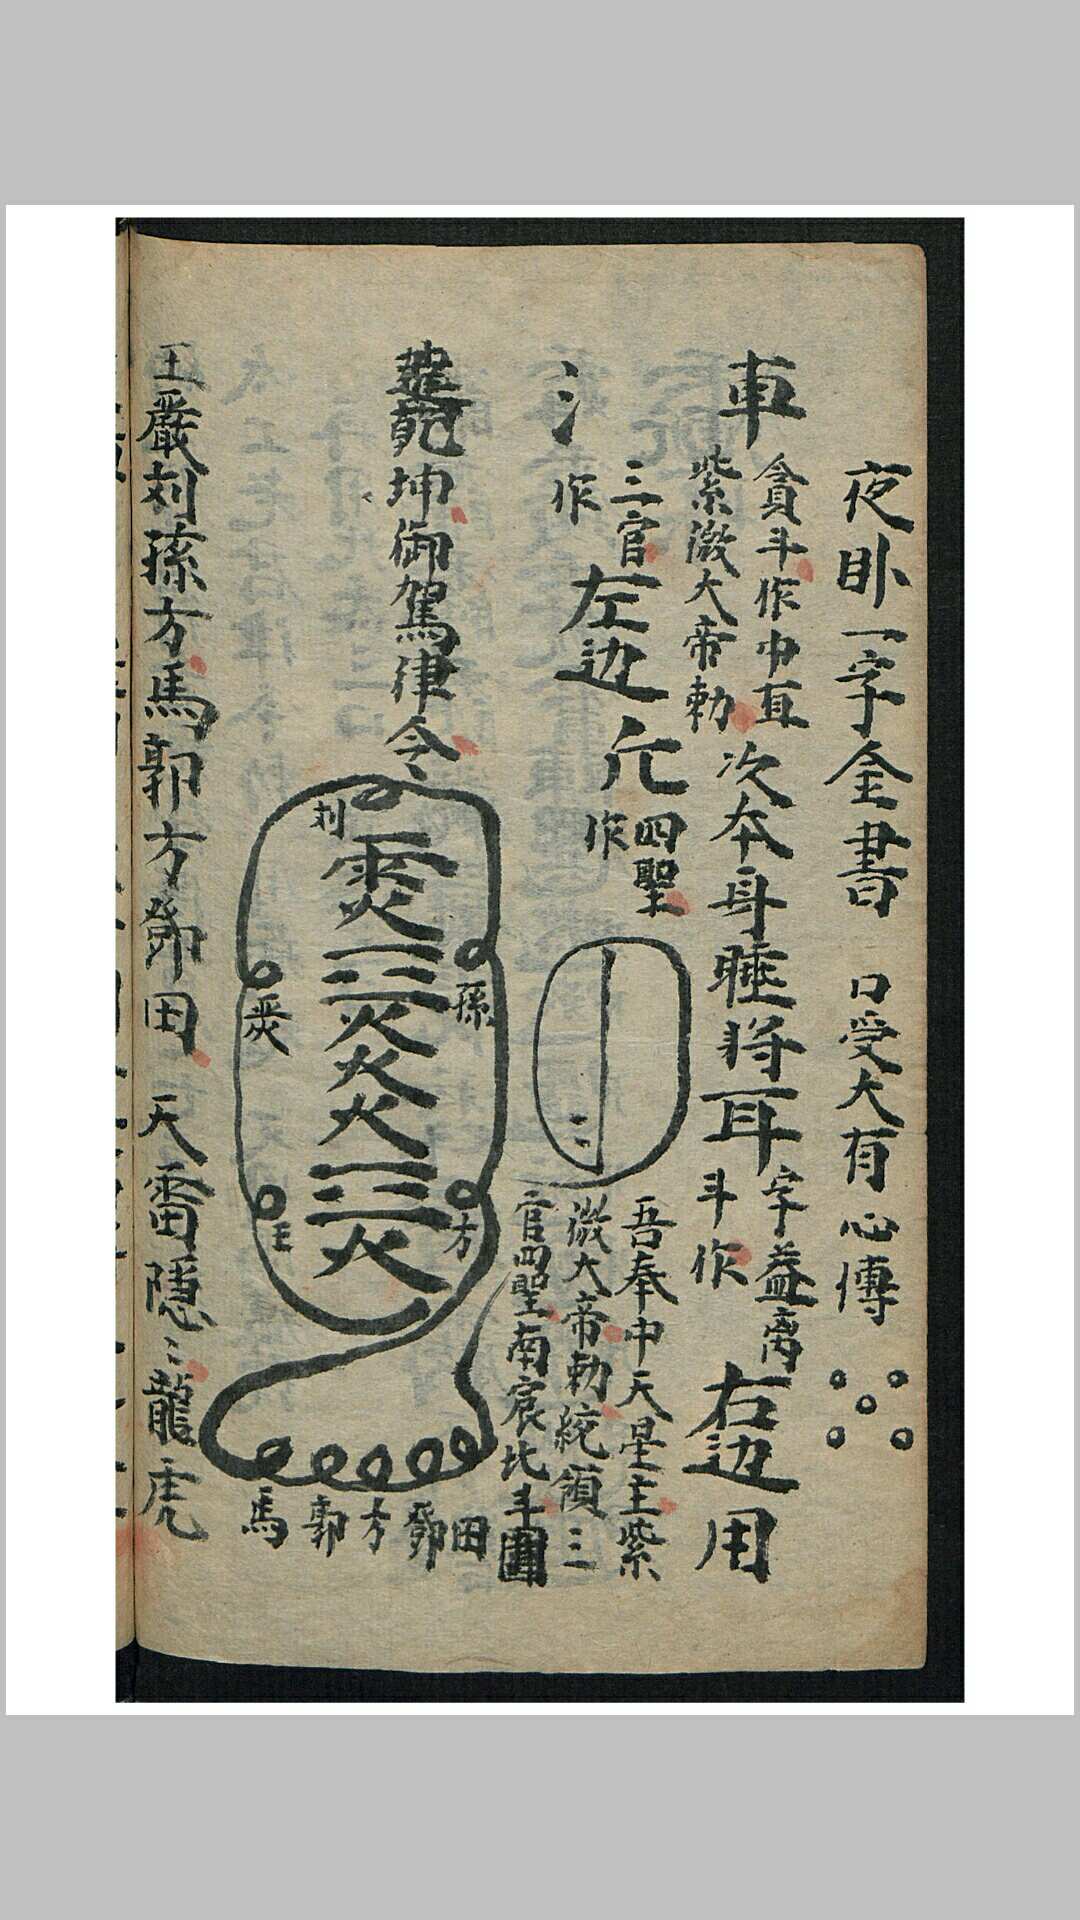 夜卧一字全書　口受大有心傳
車
貪斗作中亙
紫微大帝勅
次本身睡将耳
字益离
斗作
右边用
氵
三官
作
左边
𠂆
四聖
作
吾奉中天星主紫
微大帝勅統領三
官四聖南宸北斗
乾坤御駕律令
刘
孫
王
方
馬郭方鄧田
王嚴刘孫方馬郭方鄧田　天雷隠〻龍虎